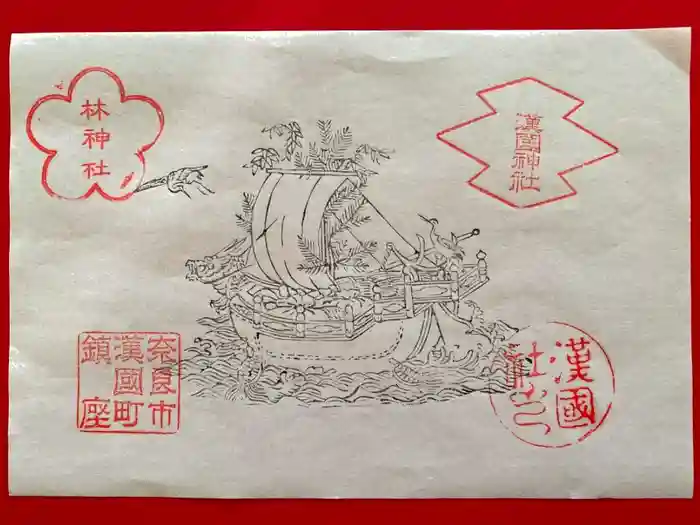 林神社
漢國神社
奈良市
漢國町
鎮座
漢國
社